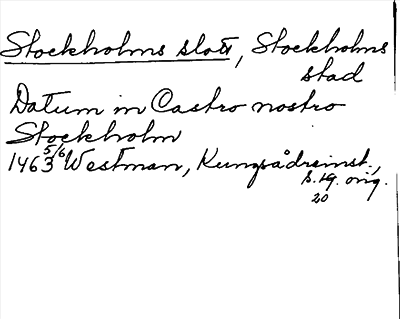 Stockholms slott, Stockholms
stad
Datum in Castro nostro
Stockholm
1463 5/6 Westman, Kungsådrainst.,
s. 19. orig.
20